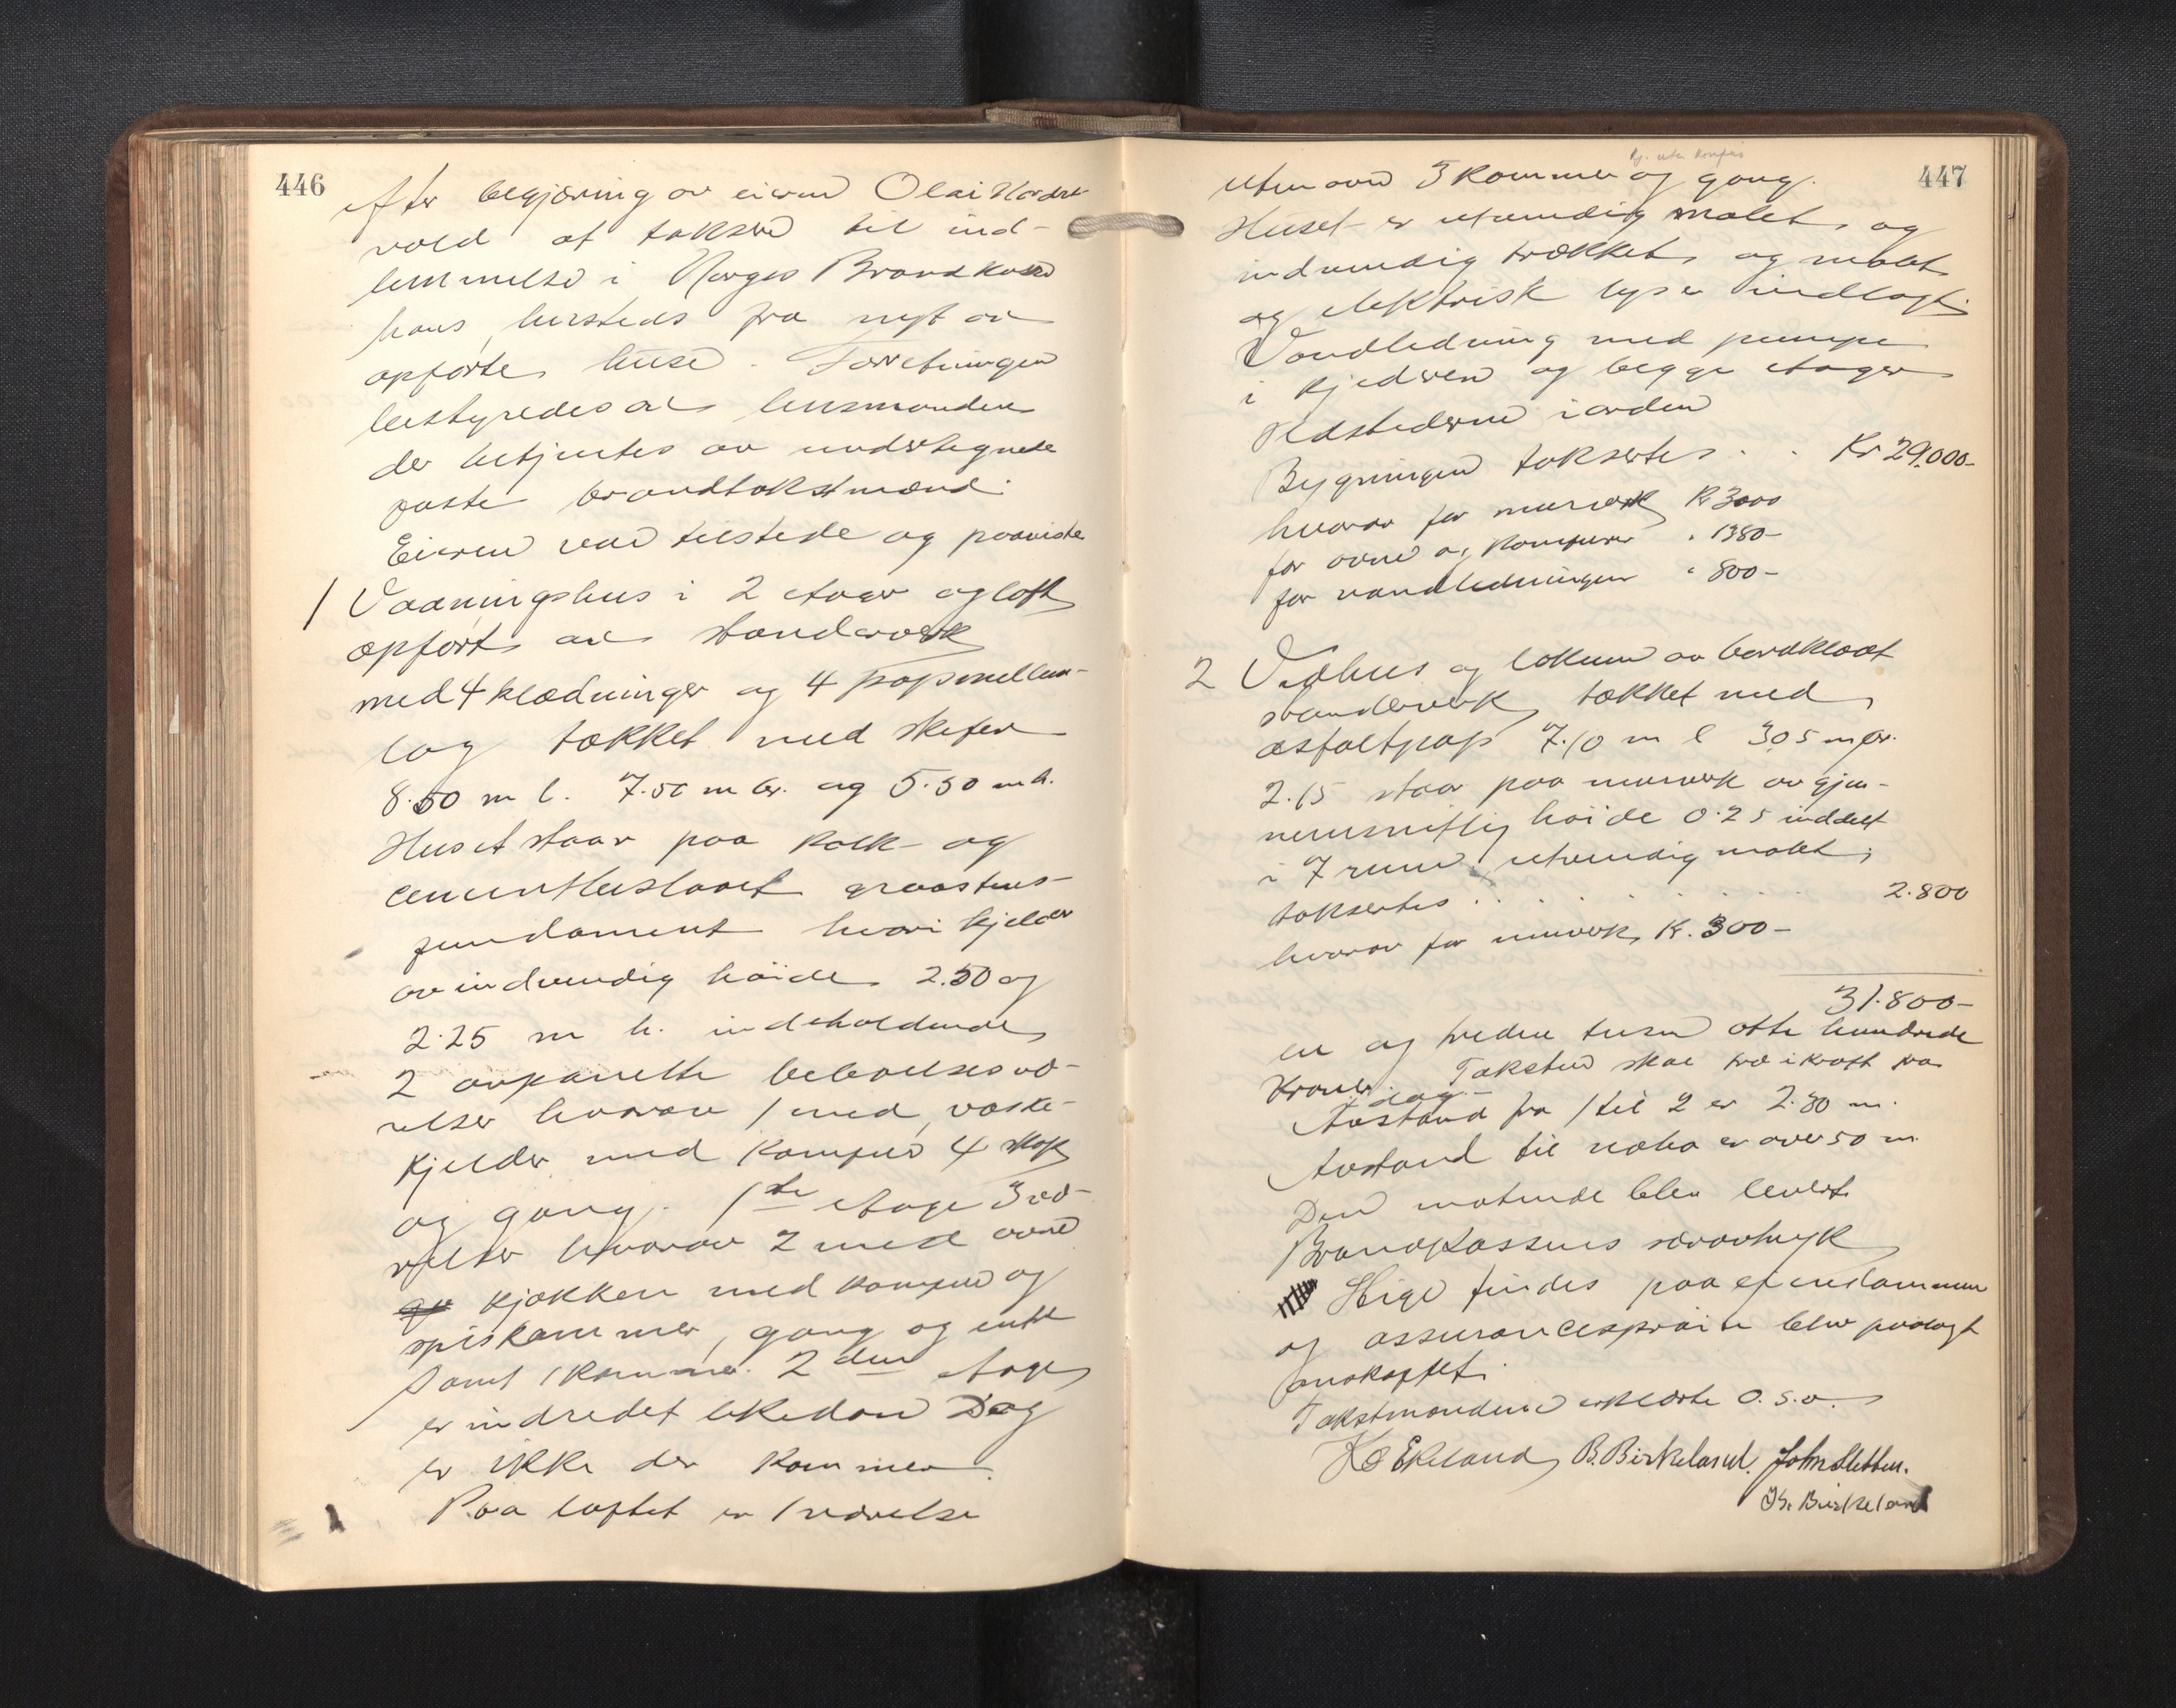 446
efter begjæring av eieren Olai Nordst-
vold at taksere til ind-
lemmelse i Norges Brandkasse
hans hersteds fra nyt av
opførte huse. Forretningen
bestyredes av lensmanden
der betjentes av undertegnede
faste brandtakstmænd.
Eieren var tilstede og paaviste
1 Vaaningshus i 2 etager og loft
opført av standerverk
med 4 klædninger og 4 papmellem-
lag tækket med skifer
8.50 m l. 7.50 m br. og 5.50 m h.
Huset staar paa kalk- og
cementhuslaaet graastens-
fundament hvori kjelder
av indvendig høide 2.50 og
2.25 m h. indeholdende
2 avpanelte beboelsesvæ-
relser hvorav 1 med, vaske-
kjelder med komfur 4
og gang. 1ste etage 3 væ-
relser hvorav 2 med ovne
og kjøkken med komfur og
spiskammer, gang og entre
samt 1 kammer. 2den etage
er indredet likedan Dog
er ikke der kammer.
Paa loftet er 1 værelse
447
uten ovn 3 kammer og gang.
Huset er utvendig malet og
indvendig trækket og malt
og elektrisk lys er indlagt.
Vandledning med pumpe
i kjelderen og begge etager
Ildstederne i orden
Bygningen taksertes . . Kr 29.000-
hvorav for murverk Kr 3000
for ovne og komfurer " 1380-
for vandledningen " 800-
2 Vedhus og lokum av bordklædt
standerverk tækket med
asfaltpap 7.10 m l 3.05 m br.
2.15 staar paa murverk av gjen-
nemsnitlig høide 0.25 inddelt
i 7 rum utvendig malet,
taksertes . . . . . . . 2.800
hvorav for murverk K. 300-
31.800-
en og tredve tusen otte hundrede
Kroner. Taksten skal træ i kraft fra
dag.
Avstand fra 1 til 2 er 2.80 m.
Avstand til nabo er over 50 m.
Den møtende blev levert
Brandkassens særavtryk
Stige findes paa eiendommen
og assurancesprøite blev paalagt
anskaffet.
Takstmændene erklærte o.s.v.
Ekeland B. Birkeland. John Sletten.
Birkeland